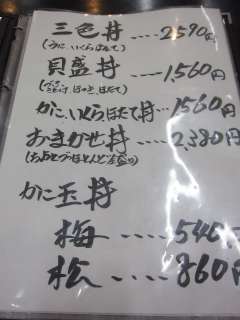 三色丼 ‥‥2,590円
(うに、いくら、ほたて)
貝盛丼 ‥‥1,560円
ほっき、ほたて)
かに、いくら、ほたて丼‥1560円
おまかせ丼‥‥2,380円
かに玉丼
梅 ‥‥‥540円
松 ‥‥‥860円